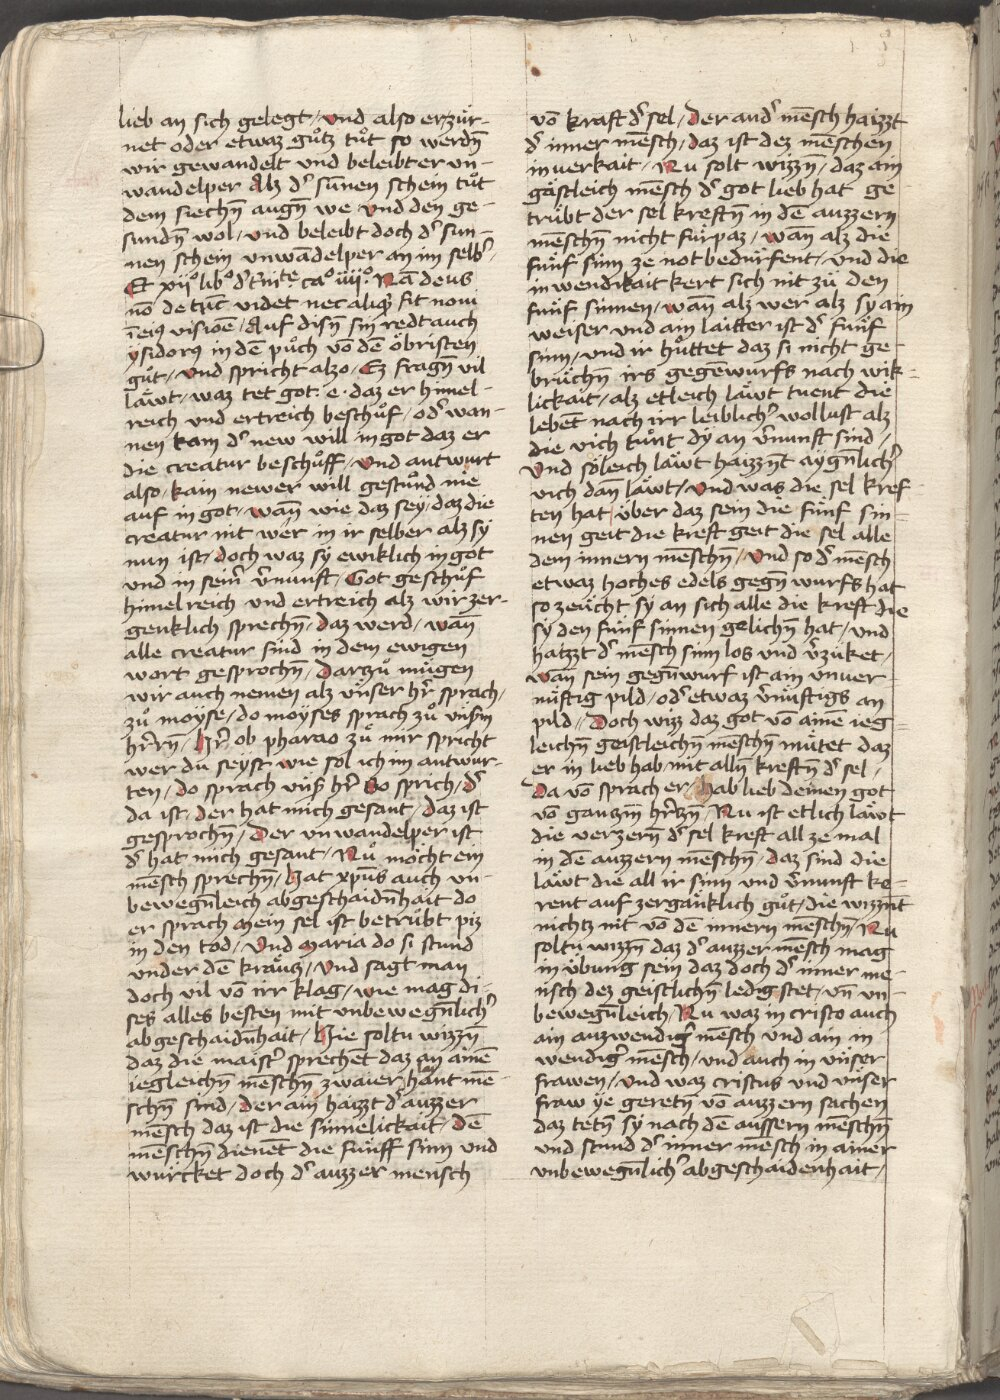 lieb an sich gelegt / vnd also erzür-
net oder etwaz guͦtz tuͦt so werdn̄
wir gewandelt vnd beleibt er vn-
wandelper Alz dˀ sunnen schein tuͦt
dem siechn̄ augn̄ we vnd den ge-
sundn̄ wol / vnd beleibt doch dˀ sun-
nen schein vnwādelper an im selbˀ /
Et xijͦ libͦ dˀ tˀnitͤ. caͦ iiijͦ. Nā deus
nō de videt nec aliqͥd fit noui
ī eiꝯ visiōe / Auf disn̄ sin redt auch
ysidorꝯ in dē puͦch vō dē öbristen
guͦt / vnd spricht alzo / Ez fragn̄ vil
läwt / waz tet got . e . daz er himel-
reich vnd ertreich beschuͦf / odˀ wan-
nen kam dˀ new will in got daz er
die creatur beschuͦff / vnd antwurt
also / kain newer will gestuͦnd nie
auf in got / wān wie daz sey / daz die
creatur nit wer in ir selber alz sy
nun ist / doch waz sy ewiklich in got
vnd in seinˀ vˀnunft / Got geschuͦf
himelreich vnd ertreich alz wir zer-
genklich sprechn̄ / daz werd / wān
alle creatur sind in dem ewigen
wort gesprochn̄ / Darzuͦ mügen
wir auch nemen alz vnser hˀr sprach /
zuͦ moyse / do moyses sprach zuͦ vnsˀm
hˀrn̄ / Hˀr ob pharao zuͦ mir spricht
wer du seyst wie sol ich im antwur-
ten / do sprach vnsˀ hˀr Do sprich / dˀ
da ist / der hat mich gesant / daz ist
gesprochn̄ / Der vnwandelper ist
dˀ hat mich gesant / Nuͦ möcht ein
mēsch sprechn̄ / Hat xpūs auch vn-
bewegn̄leich abgeschaidn̄hait do
er sprach Mein sel ist betrübt piz
in den tod / Vnd maria do si stund
vnder dē kräutz / vnd sagt man
doch vil vō irr klag / wie mag di-
ses alles besten mit vnbewegn̄lichˀ
abgeschaidn̄hait / Hie soltu wizzn̄
daz die maistˀ sprechet daz an ainē
iegleichn̄ mēschn̄ zwaier hant mē-
schn̄ sind / der ain haizzt dˀ auzzer
mēsch daz ist die sinnelickait / Dē
mēschn̄ dienēt die fünff sinn vnd
würcket doch dˀ auzzer mensch
vō kraft dˀ sel / Der andˀ mēsch haizzt
dˀ inner mēsch / daz ist dez mēschen
inuerkait / Nu solt wizzn̄ / daz ain
gästleich mēsch dˀ got lieb hat ge-
trübt der sel kreftn̄ in dē auzzern
mēschn̄ nicht fürpaz / wān alz die
fünf sinn ze not bedürfent / vnd die
inwendikait kert sich nit zü den
fünf sinnen / wān alz wer alz sy ain
weiser vnd ain laitter ist dˀ fünf
sinn / vnd ir huͦttet daz si nicht ge-
brüchn̄ irs gegewurfs nach wik-
lickait / alz etleich läwt tuent die
lebēt nach irr leiblichˀ wollust alz
die vich tünt dy an vˀnunft sind /
Vnd söleich läwt haizznt aygn̄lichˀ
vich dan läwt / vnd was die sel kref-
ten hat über daz sein die fünf sin-
nen geit die kreft geit die sel alle
dem innern mēschn̄ / vnd so dˀ mēsch
etwaz hoches edels gegn̄wurfs hat
so zeücht sy an sich alle die kreft die
sy den fünf sinnen gelichn̄ hat / vnd
haizzt dˀ mēsch sinnlos vnd vˀzüket /
wān sein gegn̄wurf ist ain vnuer-
nüftig pild / odˀ etwaz vˀnüftigs an
pild / Doch wizz daz got vō aine ieg-
leichn̄ geistleichn̄ mēschn̄ mütet daz
er in lieb hab mit alln̄ kreftn̄ dˀ sel /
Da vō sprach er / hab lieb deinen got
vō gantzm̄ hˀtzn̄ / Nu ist etlich läwt
die verzern̄ dˀ sel kreft all ze mal
in dē auzzern mēschn̄ / daz sind die
läwt die all ir sinn vnd vˀnunft ke-
rent auf zergänklich guͦt / die wizznt
nichtz nit vō dē innern mēschn̄ / Nu
soltu wizzn̄ daz dˀ auzzer mēsch mag
in übung sein daz doch dˀ inner me-
nsch dez geistlichn̄ ledig stet / vn̄ vn-
bewegn̄leich / Nu waz in cristo auch
ain auzwendigˀ mēsch vnd ain in-
wendigˀ mēsch / vnd auch in vnser
frawen / vnd waz cristus vnd vnser
fraw ye geretn̄ vō auzzern sachen
daz tetn̄ sy nach dē aussern mēschn̄
vnd stund dˀ inner mēsch in ainer
vnbewegn̄lichˀ abgeschaidenhait /